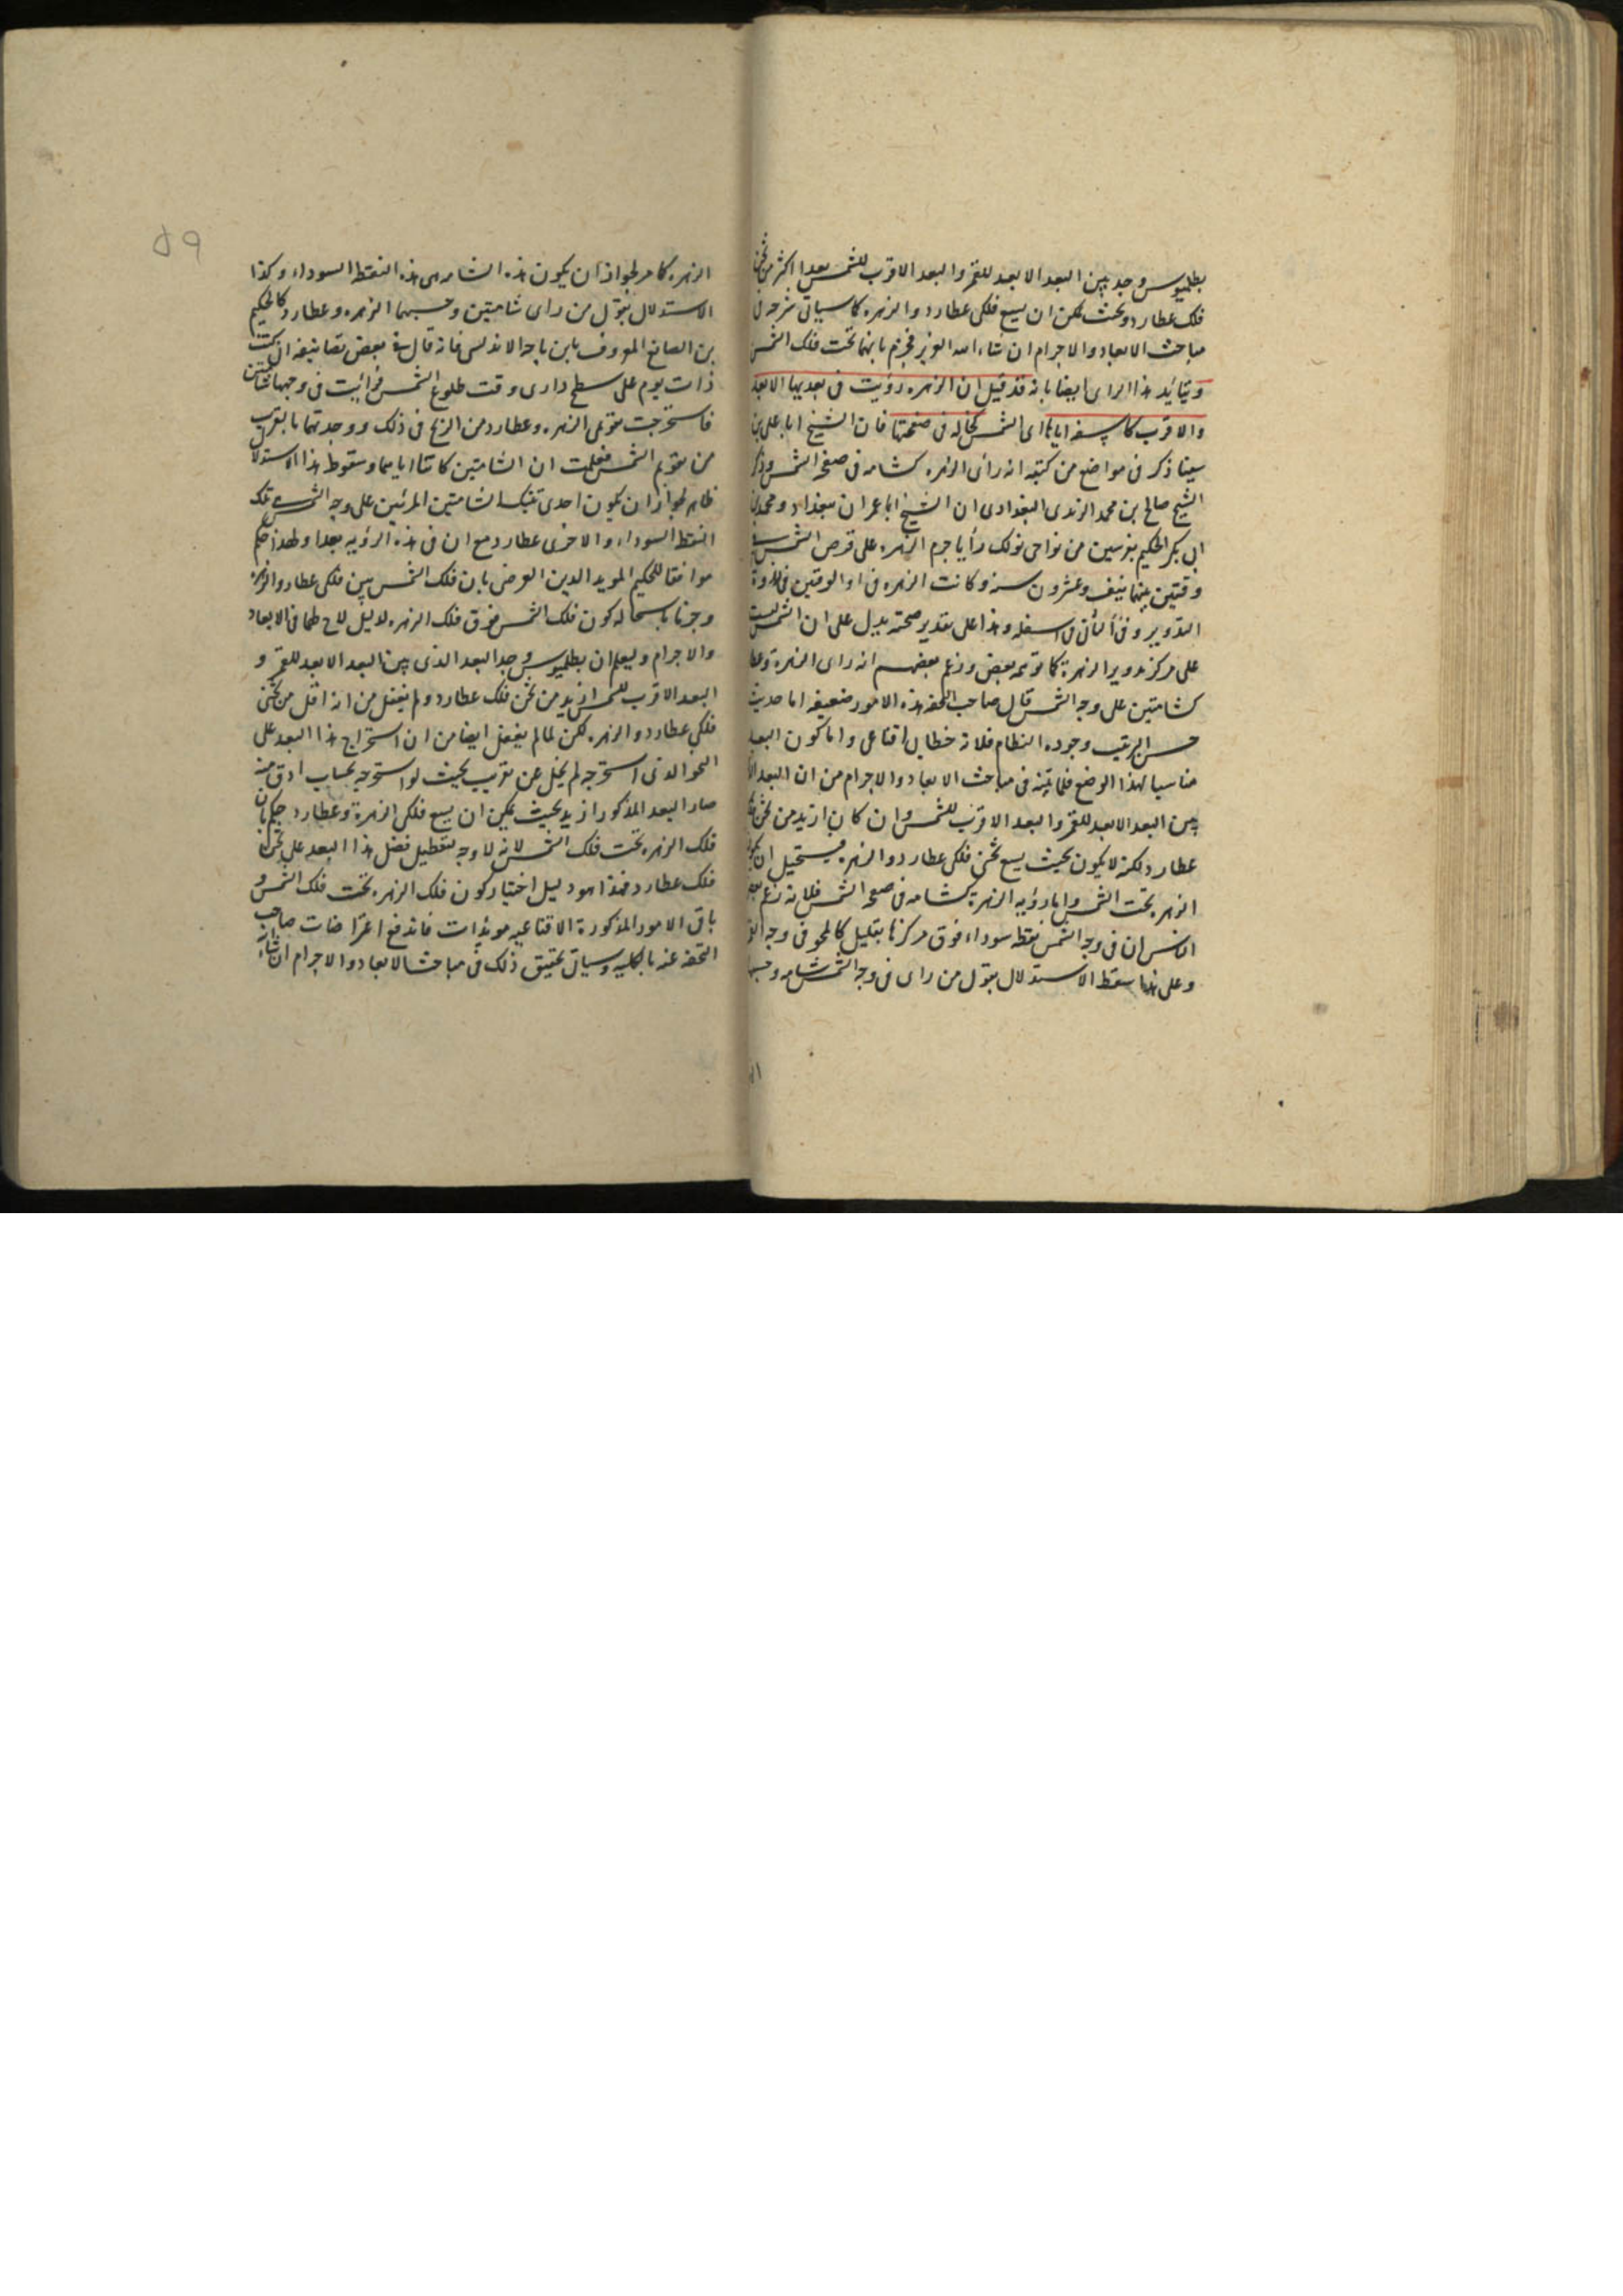 بطلميوس وجد بين البعد الابعد للقمر والبعد الاقرب للشمس بعدا اكثر من ثخن
فلك عطارد وبحيث يمكن ان يسع فلكى عطارد والزهره كما سياتى شرحه فى
مباحث الابعاد والاجرام ان شاء الله العزيز فجزم بانهما تحت فلك الشمس
ويتايد هذا الراى ايضا بانه قد قيل ان الزهره رؤيت فى بعديها الابعد
والاقرب كاسفه اياها اى الشمس كخاله فى صفحتها فان الشيخ ابا على بن
سينا ذكر فى مواضع من كتبه انه رأى الزهره كشامه فى صفحه الشمس وذكر
الشيخ صالح بن محمد الزندى البغدادى ان الشيخ ابا عمران ببغداد ومحمد بن
ابى بكر الحكيم بفرسين من نواحى تولك رأيا جرم الزهره على قرص الشمس فى
وقتين بينهما نيف وعشرون سنه وكانت الزهره فى اول الوقتين فى ذروة
التدوير وفى الثانى فى اسفله وهذا على تقدير صحته يدل على ان الشمس ليست
على مركز تدوير الزهرة كما توهمه بعض وزعم بعضهم انه راى الزهرة وعطارد
كشامتين على وجه الشمس قال صاحب التحفه هذه الامور ضعيفه اما حديث
حسن الترتيب وجوده النظام فلانه خطابى اقناعى واما كون البعد
مناسبا لهذا الوضع فلما يتبين فى مباحث الابعاد والاجرام من ان البعد الذى
بين البعد الابعد للقمر والبعد الاقرب للشمس وان كان ازيد من ثخن فلك
عطارد لكنه لا يكون بحيث يسع ثخنى فلكى عطارد والزهره فيستحيل ان يكون
الزهره تحت الشمس واما رؤيه الزهرة كشامه فى صفحه الشمس فلانه زعم بعض
الناس ان فى وجه الشمس نقطه سوداء فوق مركزها بقليل كالمحو فى وجه القمر
وعلى هذا سقط الاستدلال بقول من راى فى وجه الشمس شامه وحسبها
الزهره كما مر لجواز ان يكون هذه الشامه هى هذه النقطه السوداء وكذا
الاستدلال بقول من راى شامتين وحسبهما الزهره وعطارد كالحكيم
بن الصائغ المعروف بابن باجه الاندلسى فانه قال فى بعض تصانيفه انى كنت
ذات يوم على سطح دارى وقت طلوع الشمس فرأيت فى وجهها شامتين
فاستخرجت مقومى الزهره وعطارد من الزيج فى ذلك ووجدتهما بالقرب
من مقوم الشمس فعلمت ان الشامتين كانتا اياهما وسقوط هذا الاستدلال
ظاهر لجواز ان يكون احدى تينك الشامتين المرئيتين على وجه الشمس هى تلك
النقطه السوداء والاخرى عطارد مع ان فى هذه الرؤيه بعدا ولهذا حكم
موافقا للحكيم المويد الدين العرضى بان فلك الشمس بين فلكى عطارد والزهره
وجزما باستحاله كون فلك الشمس فوق فلك الزهره لدليل لاح لهما فى الابعاد
والاجرام وليعلم ان بطلميوس وجد البعد الذى بين البعد الابعد للقمر و
البعد الاقرب للشمس ازيد من ثخن فلك عطارد ولم يغفل من انه اقل من ثخنى
فلكى عطارد والزهره لكن لما لم يغفل ايضا من ان استخراج هذا البعد على
النحو الذى استخرجه لم يخل عن تقريب بحيث لو استخرجه بحساب ادق منه
صار البعد المذكور ازيد بحيث يمكن ان يسع فلكى الزهرة وعطارد حكم بان
فلك الزهره تحت فلك الشمس لانه لا وجه لتعطيل فضل هذا البعد على ثخن
فلك عطارد فهذا هو دليل اختيار كون فلك الزهره تحت فلك الشمس و
باقى الامور المذكورة الاقناعيه مويدات فاندفع اعتراضات صاحب
التحفه عنه بالكليه وسياتى تحقيق ذلك فى مباحث الابعاد والاجرام ان شاء الله